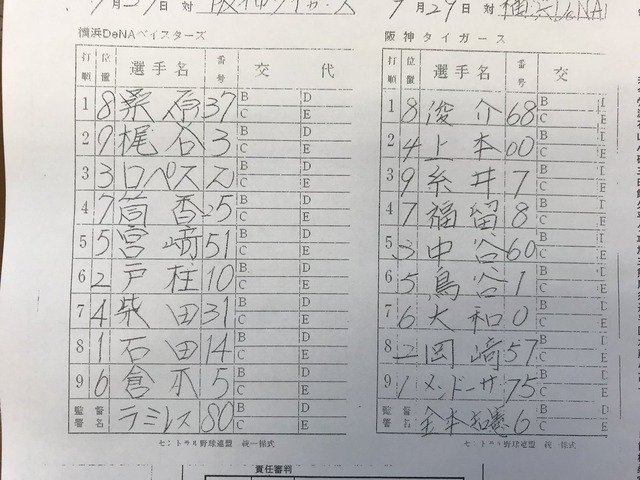 9月29日 対 阪神タイガース
横浜DeNAベイスターズ
打順 位置 選手名 番号 交 代
1 8 桑原 37 B C D E
2 9 梶谷 3 B C D E
3 3 ロペス 2 B C D E
4 7 筒香 25 B C D E
5 5 宮﨑 51 B C D E
6 2 戸柱 10 B C D E
7 4 柴田 31 B C D E
8 1 石田 14 B C D E
9 6 倉本 5 B C D E
監督署名 ラミレス 80 B C D E
セントラル野球連盟 統一様式
9月29日 対 横浜DeNA
阪神タイガース
打順 位置 選手名 番号 交
1 8 俊介 68 B C D E
2 4 上本 00 B C D E
3 9 糸井 7 B C D E
4 7 福留 8 B C D E
5 3 中谷 60 B C D E
6 5 鳥谷 1 B C D E
7 6 大和 0 B C D E
8 2 岡﨑 57 B C D E
9 1 メンドーサ 75 B C D E
監督署名 金本知憲 6 B C D E
セントラル野球連盟 統一様式
責任審判